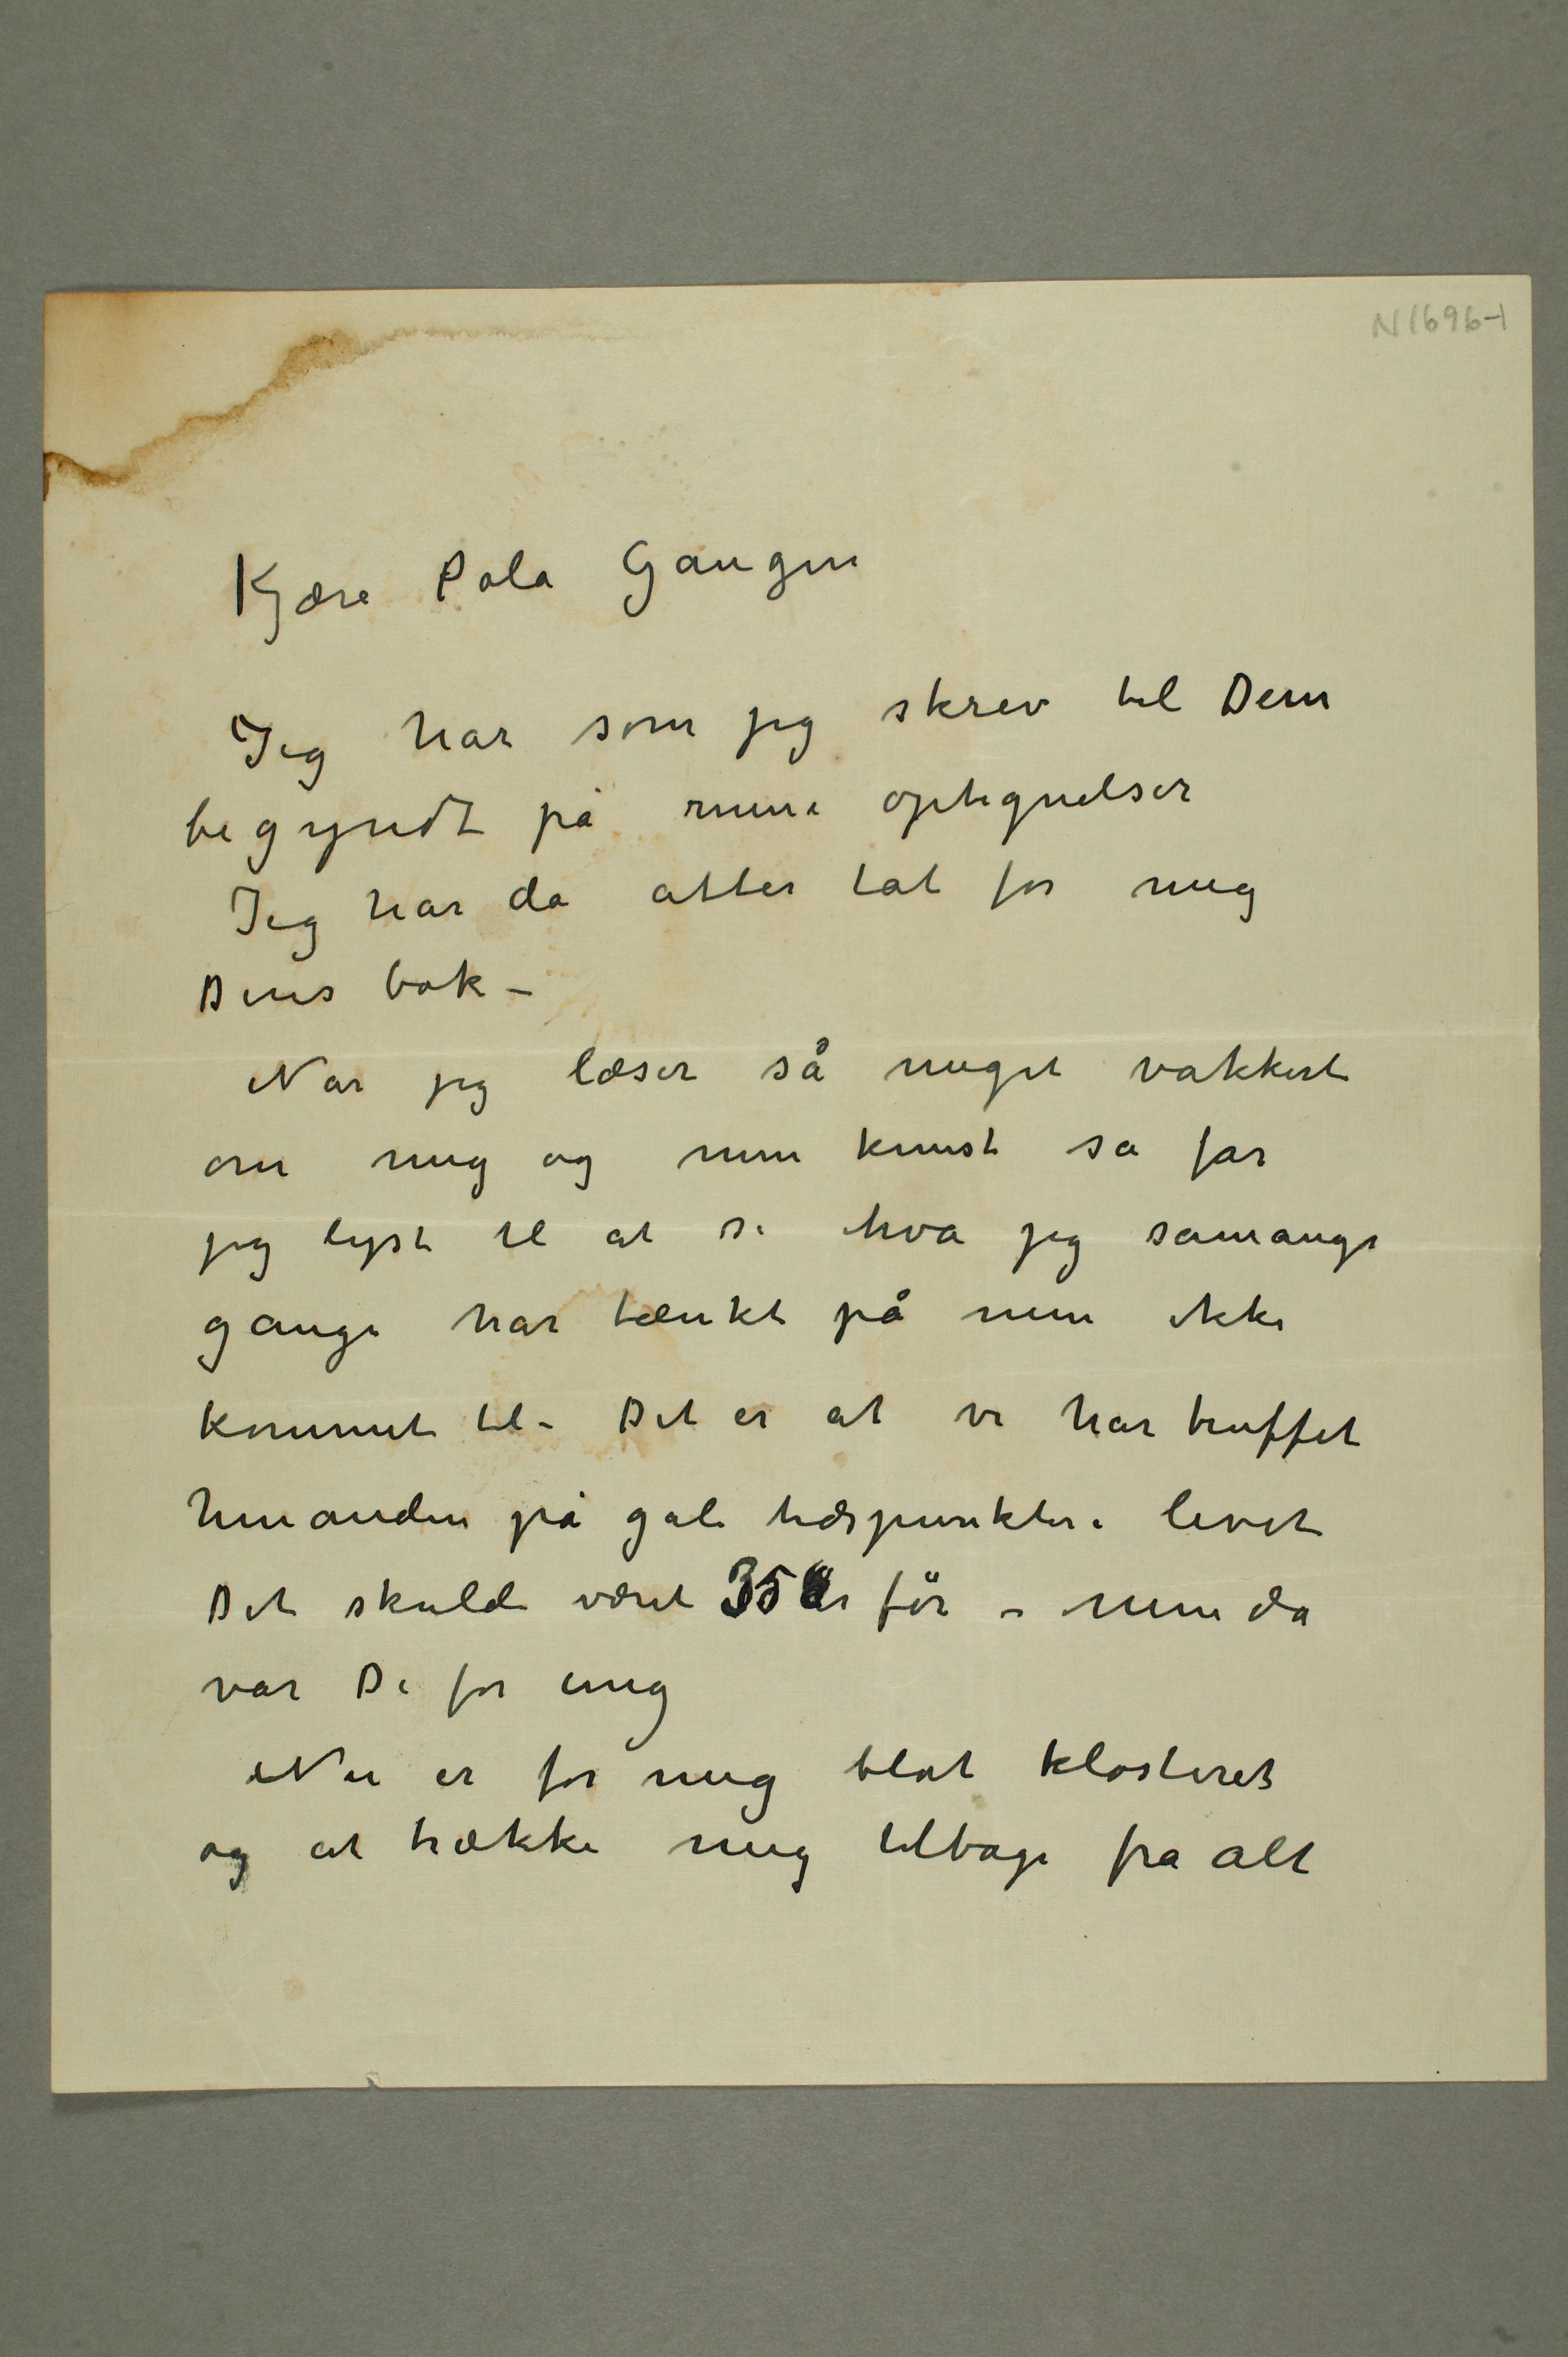 N 1696-1
Kjære Pola Gaugin
Jeg har som jeg skrev til Dem
begyndt på mine optegnelser
Jeg har da atter tat for meg
Deres bok –
Når jeg læser så meget vakkert
om meg og min kunst så får
jeg lyst til at si hva jeg såmange
gange har tænkt på men ikke
kommet til – Det er at vi har truffet
hinanden på gale tidspunkter i livet
Det skulde været 35 år før – men da
var De for ung
Nu er for meg blot klosteret
og at trække meg tilbage fra alt